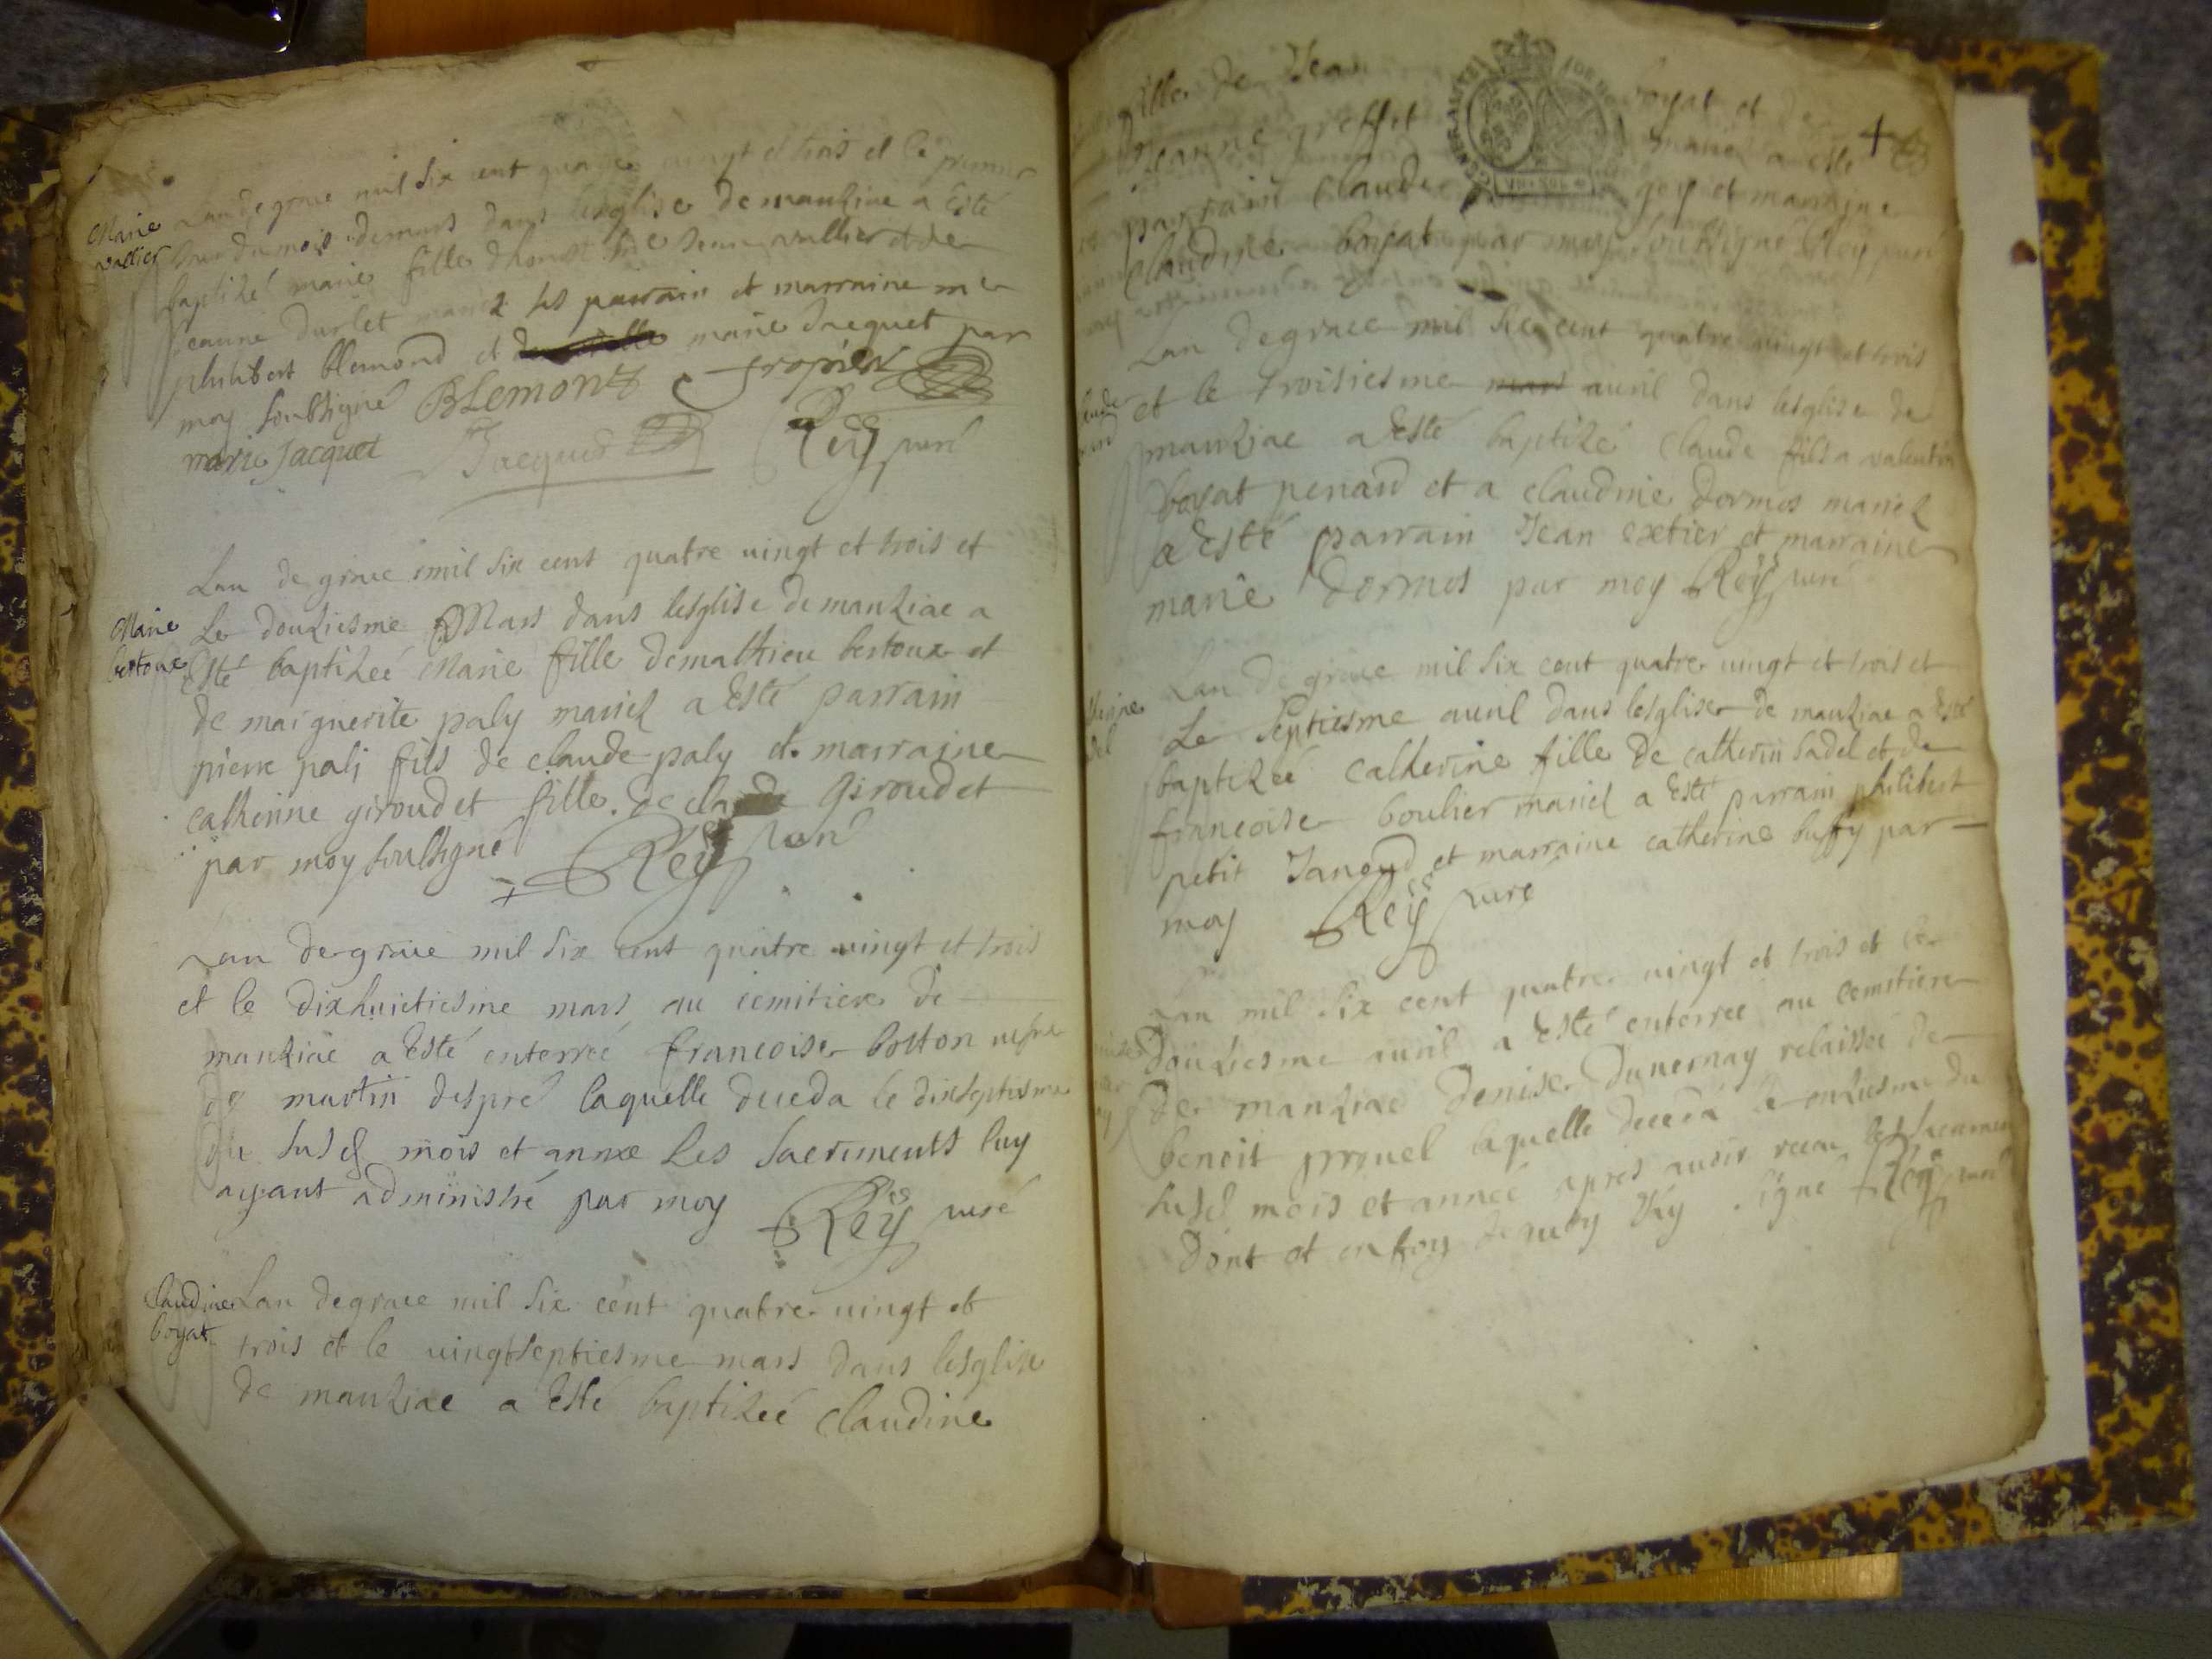 Marie
vallier
Lan de grace mil six cent quatre vingt et trois et le premier
jour du mois de mars dans lesglise de manziae a Esté
baptizé marie fille dhonest Jean vallier et de
jeanne durlet mariez ses parrain et marraine me
philibert blemond et marie Jacquet par
moy soubsigné BLemont
marie Jacquet Jacquet Reÿ curé
Lan de grace mil six cent quatre vingt et trois et
Marie
bertoux
Le douziesme Mars dans lesglise de manziae a
Esté baptizeé Marie fille de mathieu bertoux et
de marguerite paly mariez a Esté parrain
pierre pali fils de claude paly et marraine
catherine giroudet fille de claude Giroudet
par moy soubsigné Reÿ curé
Lan de grace mil six cent quatre vingt et trois
et le dixhuictiesme mars au cemitiere de
manziae a Esté enterreé francoise botton vefve
de martin despré laquelle deceda le dixseptiesme
du susd mois et annee Les sacrements luy
ayant administré par moy Reÿ curé
Claudine
boyat
Lan de grace mil six cent quatre vingt et
trois et le vingtseptiesme mars dans lesglise
de manziae a Esté baptizeé Claudine
fille de Jean boyat et de
jeanne greffet mariez a esté
parrain Claude goy et marraine
Claudine boyat par moy soubsigné Reÿ curé
4
GENER
Lan de grace mil six cent quatre vingt et trois
et le troisiesme mars auril dans lesglise de
manziae a Esté baptizé Claude fils a valentin
boyat penard et a claudine dormos mariez
a Esté parrain Jean extier et marraine
marie dormos par moy Reÿ curé
Lan de grace mil six cent quatre vingt et trois et
Le septiesme auril dans lesglise de manziae a Esté
baptizeé catherine fille de catherin sadel et de
francoise boulier mariez a Esté parrain philibert
petit Janoud et marraine catherine buffy par
moy Reÿ curé
Lan mil six cent quatre vingt et trois et le
douziesme auril a Esté enterree au cemitiere
de manziae denise duvernay relaisseé de
benoit laquelle deceda le onziesme du
susd mois et anneé apres auoir receu les sacrements
dont et en foy de quoy Jay signé Reÿ curé